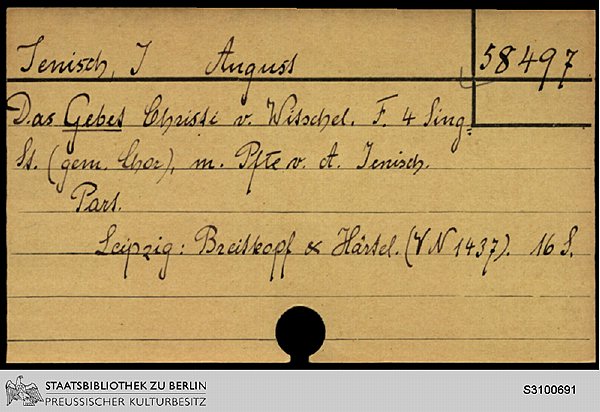 Jenisch, J August
58497
Das Gebet Christi v. Witschel. F. 4 Sing=
St. (gem. Chor), m. Pfte v. A. Jenisch.
Part.
Leipzig: Breitkopf & Härtel. (VN 1437). 16 S.
STAATSBIBLIOTHEK ZU BERLIN
PREUSSISCHER KULTURBESITZ
S3100691